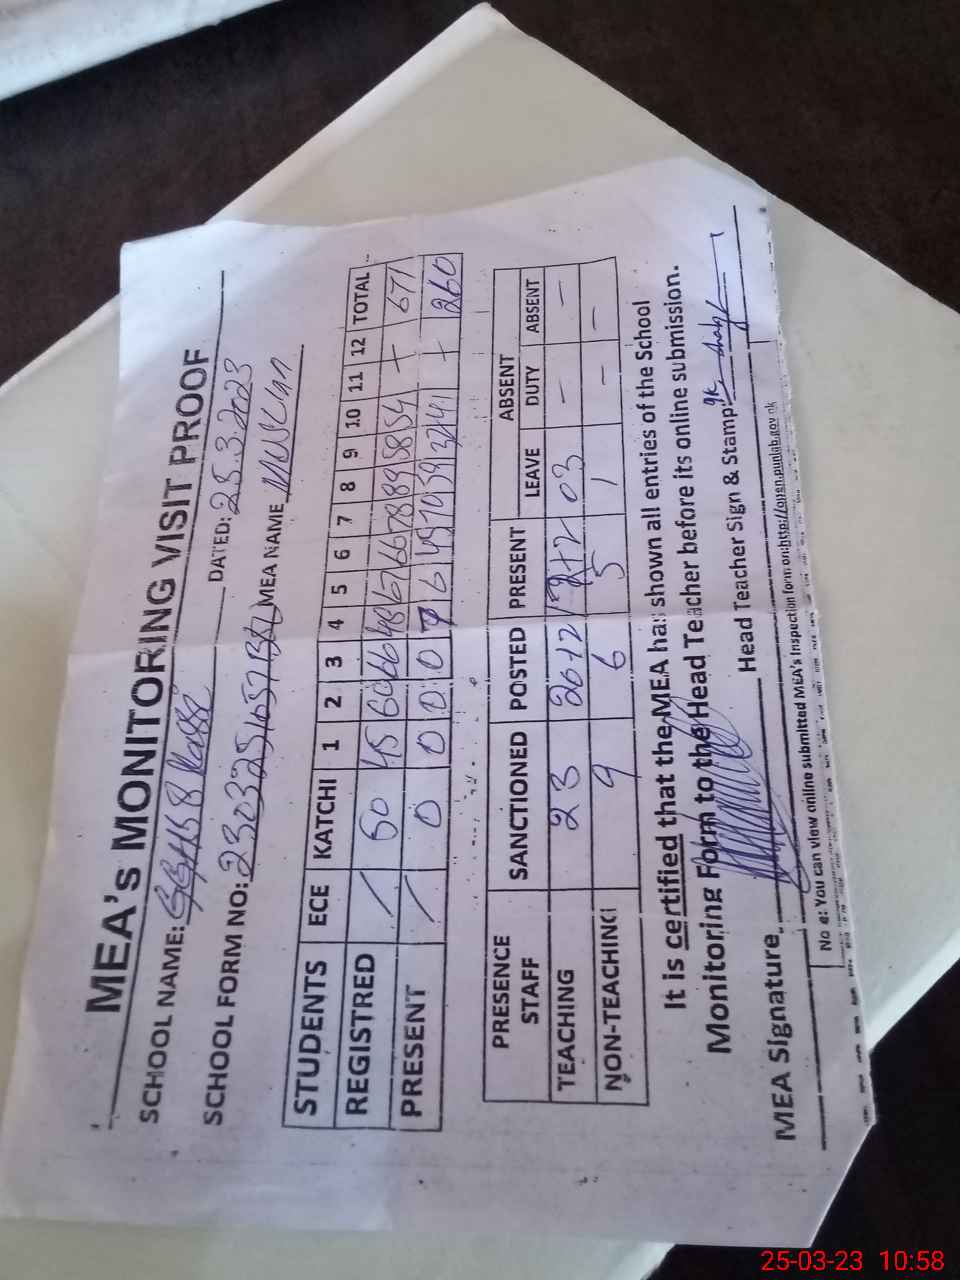 MEA's MONITORING VISIT PROOF
SCHOOL NAME: DATED: 25.3.2023
SCHOOL FORM NO: MEA NAME
STUDENTS ECE KATCHI 1 2 3 4 5 6 7 8 9 10 11 12 TOTAL
REGISTRED / 50 45 60 66 48 67 66 78 89 58 54 - 671
PRESENT / 0 0 0 0 6 45 70 39 37 41 - 260
PRESENCE STAFF SANCTIONED POSTED PRESENT ABSENT
LEAVE DUTY ABSENT
TEACHING 23 03 - -
NON-TEACHING 9 6 5 1 - -
It is certified that the MEA has shown all entries of the School
Monitoring Form to the Head Teacher before its online submission.
MEA Signature Head Teacher Sign & Stamp:
No e: You can view online submitted MEA's Inspection form on:http://open.punjab.gov.pk
25-03-23 10:58